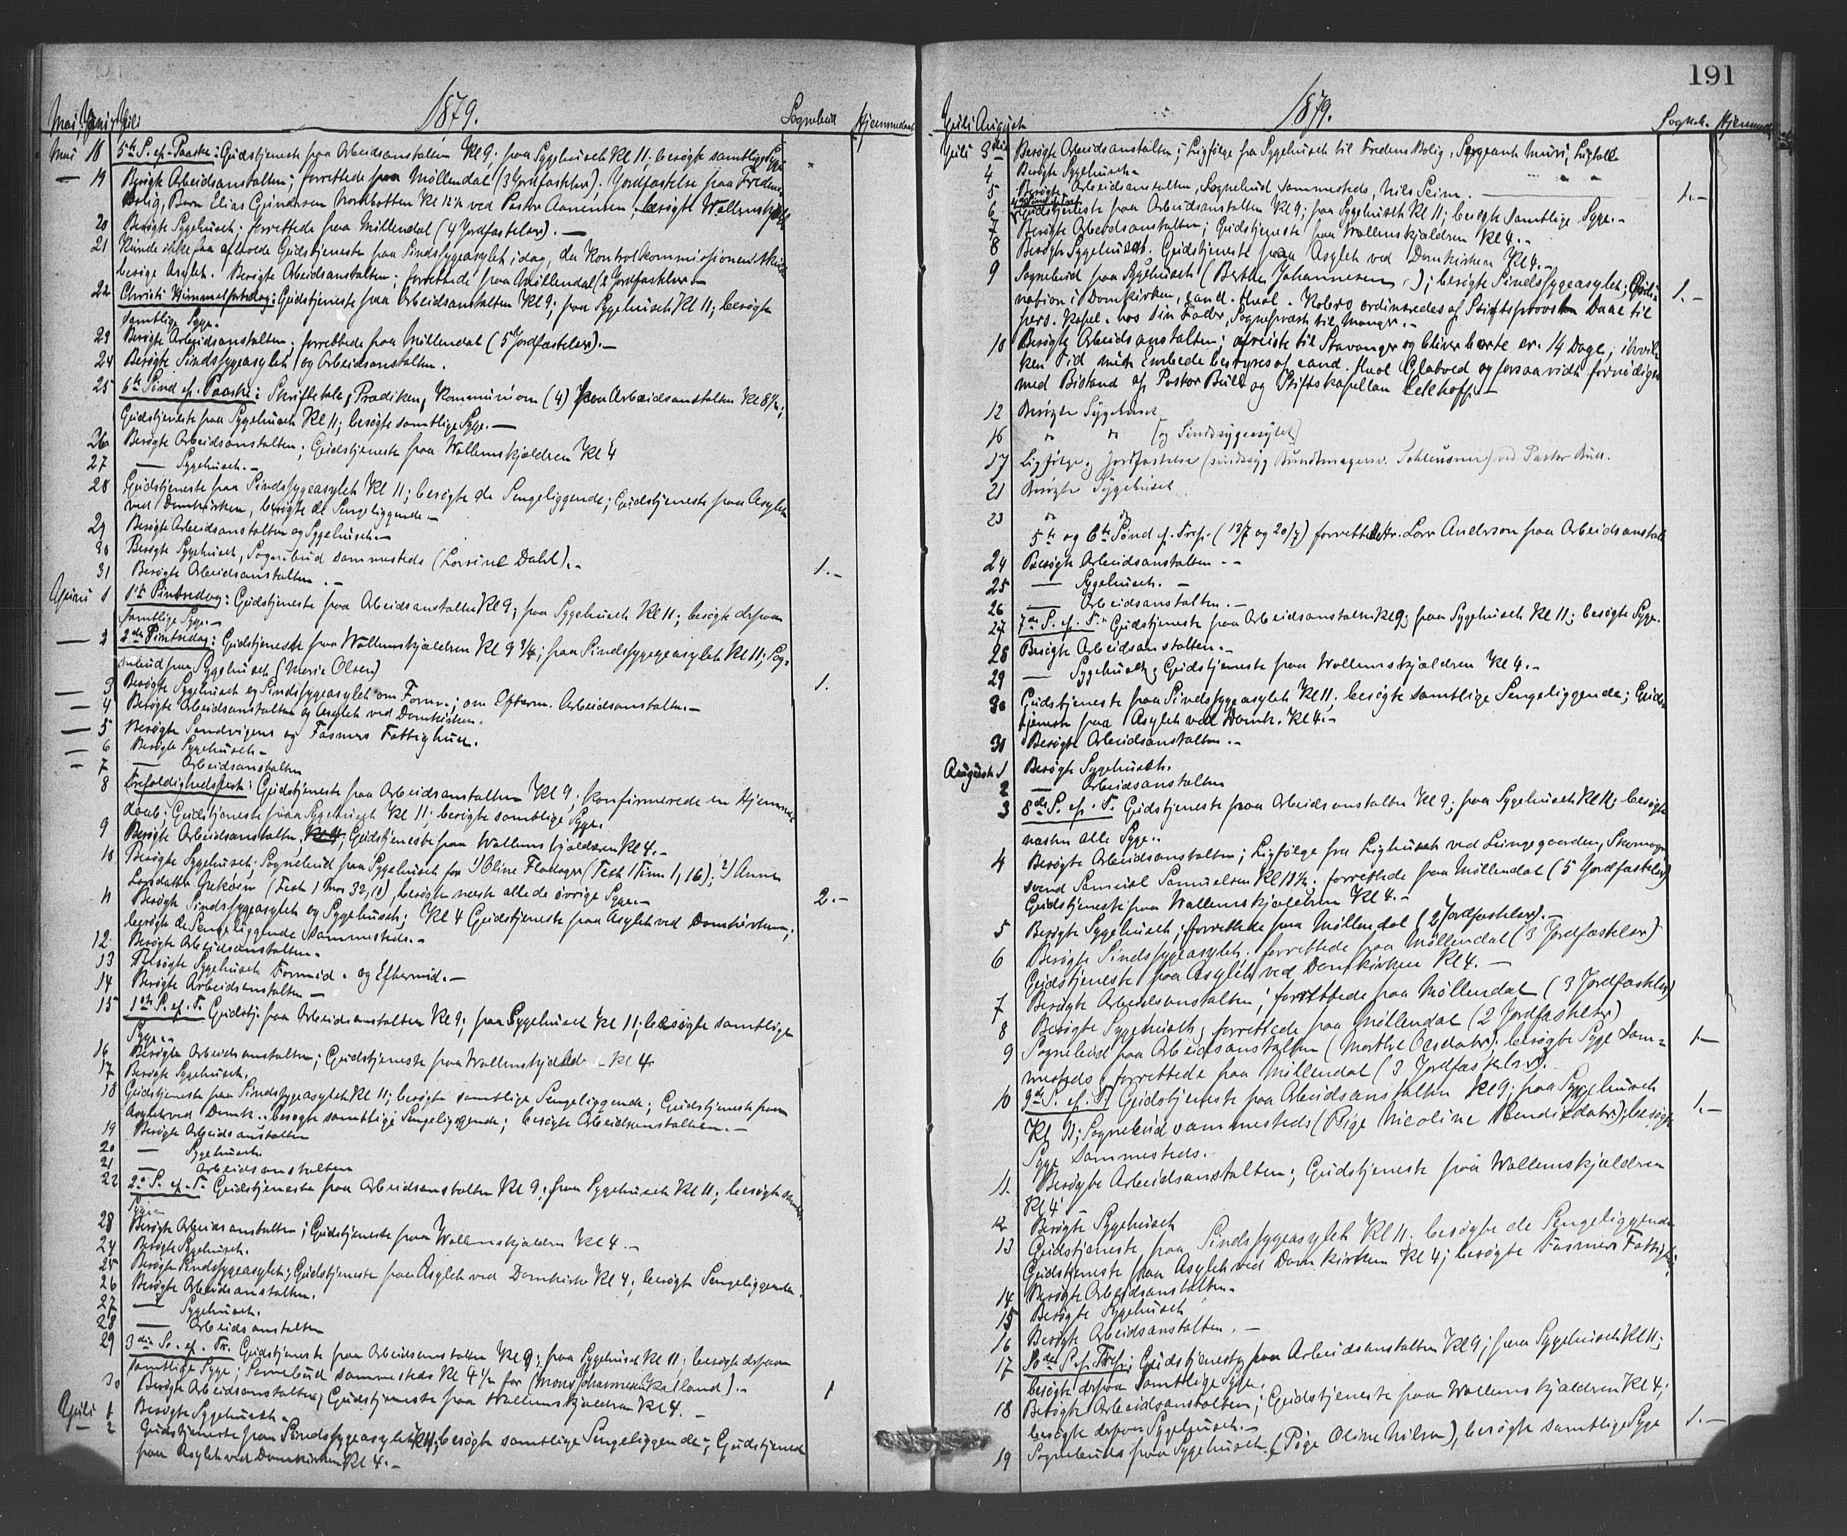 1879.
Mai, Juni, Juli
Sognebud
Hjemmedaab
Mai 18 5te S. ef. Paaske: Gudstjeneste paa Arbeidsanstalten Kl 9. paa Sygehuset Kl 11. besøgte samtlige Syge
— 19 Besøgte Arbeidsanstalten; forrettede paa Møllendal (3 Jordfæstelser). Jordfæstelse paa Fredens
Bolig, Barn Elias Gundersen Nordbotten Kl 12½ ved Pastor Aanensen. besøgte
20 Besøgte Sygehuset; forrettede paa Möllendal (4 Jordfæstelser). —
21 Kunde ikke faa afholde Gudstjeneste paa Sindssygeasylet idag, da Kontrolkommissionen skulde
besøge Asylet. Besøgte Arbeidsanstalten; forrettede paa Møllendal (2 Jordfæstelser —
22 Christi Himmelfartsdag: Gudstjeneste paa Arbeidsanstalten Kl 9; paa Sygehuset Kl 11; besøgte
samtlige Syge.
23 Besøgte Arbeidsanstalten; forrettede paa Möllendal (5 Jordfæstelser). —
24 Besøgte Sindssygeasylet og Arbeidsanstalten.
25 6te Sønd ef. Paaske: Skriftetale, Prædiken, Kommunion (4) paa Arbeidsanstalten Kl 8½;
Gudstjeneste paa Sygehuset Kl 11; besøgte samtlige Syge. —
26 Besøgte Arbeidsanstalten; Gudstjeneste paa Wallemskjældren Kl 4
27 — Sygehuset. —
28 Gudstjeneste paa Sindssygeasylet Kl 11; besøgte de Sengeliggende; Gudstjeneste paa Asylet
ved Domkirken, besøgte de Sengeliggende —
29 Besøgte Arbeidsanstalten og Sygehuset. —
30 Besøgte Sygehuset, Sognebud sammesteds (Lovsine Dahl). — 1. —
31 Besøgte Arbeidsanstalten. —
Juni 1 1ste Pintsedag: Gudstjeneste paa Arbeidsanstalten Kl 9; paa Sygehuset Kl 11; besøgte derpaa
samtlige Syge. —
— 2 2den Pintsedag: Gudstjeneste paa Wallemskjældren Kl 9¾; paa Sindssygeasylet Kl 11; Sog-
nebud paa Sygehuset (Marie Olsen) 1.
— 3 Besøgte Sygehuset og Sindssygeasylet om Form.; om Efterm. Arbeidsanstalten. —
— 4 Besøgte Arbeidsanstalten og Asylet ved Domkirken.
— 5 Besøgte Sandvigens og Fasmers Fattighus.
— 6 Besøgte Sygehuset. —
— 7 — Arbeidsanstalten
8 Trefoldighedsfest: Gudstjeneste paa Arbeidsanstalten Kl 9; konfirmerede en Hjemme
daab; Gudstjeneste paa Sygehuset Kl 11. besøgte samtlige Syge.
9 Besøgte Arbeidsanstalten; Gudstjeneste paa Wallemskjældren Kl 4. —
10 Besøgte Sygehuset; Sognebud paa Sygehuset for 1) Oline Fladager (Text 1 Tim 1, 16); 2) Anne
Larsdatter (Text 1 Mos 32, 10), besøgte næsten alle de øvrige Syge. — 2. —
11 Besøgte Sindssygeasylet og Sygehuset; Kl 4 Gudstjeneste paa Asylet ved Domkirken,
besøgte de Sengeliggende sammesteds. —
12. Besøgte Arbeidsanstalten. —
13 Besøgte Sygehuset Formid. og Eftermid. —
14 Besøgte Arbeidsanstalten —
15 1ste S. ef. T. Gudstj. paa Arbeidsanstalten Kl 9; paa Sygehuset Kl 11; besøgte samtlige
Syge. —
16 Besøgte Arbeidsanstalten; Gudstjeneste paa Wallemskjældren Kl 4
17 Besøgte Sygehuset.
18 Gudstjeneste paa Sindssygeasylet Kl 11; besøgte samtlige Sengeliggende; Gudstjeneste paa
Asylet ved Domk.. besøgte samtlige Sengeliggende; besøgte Arbeidsanstalten. —
19 Besøgte Arbeidsanstalten
20 — Sygehuset
21 — Arbeidsanstalten
22 2. S. ef. T. Gudstjeneste paa Arbeidsanstalten Kl 9; paa Sygehuset Kl 11; besøgte
Syge —
23 Besøgte Arbeidsanstalten; Gudstjeneste paa Wallemskjældren Kl 4. —
24 Besøgte Sygehuset.
25 Besøgte Sindssygeasylet; Gudstjeneste paa Asylet ved Domkirken Kl 4; besøgte Sengeliggende.
26 Besøgte Arbeidsanstalten.
27 — Sygehuset.
28 — Arbeidsanstalten
29 3die S. ef. Tr. Gudstjeneste paa Arbeidsanstalten Kl 9; paa Sygehuset Kl 11; besøgte derpaa
samtlige Syge; Sognebud sammesteds Kl 4½ for (Mons Johannesen Kalland). — 1
30 Besøgte Arbeidsanstalten; Gudstjeneste paa Wallemskjældren Kl 4. —
Juli 1 Besøgte Sygehuset. —
— 2 Gudstjeneste paa Sindssygeasylet Kl 11; besøgte samtlige Sengeliggende; Gudstjeneste
paa Asylet ved Domkirken Kl 4. —
191
1879.
Juli August
Sogneb. Hjemmed
Juli 3die Besøgte Arbeidsanstalten; Ligfølge fra Sygehuset til Fredens Bolig, Sergeant
4 Besøgte Sygehuset.
5 Besøgte Arbeidsanstalten, Sognebud sammesteds, Nils Seim. 1. —
6 Gudstjeneste paa Arbeidsanstalten Kl 9; paa Sygehuset Kl 11; besøgte samtlige Syge. —
7 Besøgte Arbeidsanstalten; Gudstjeneste paa Wallemskjældren Kl 4. —
8 Besøgte Sygehuset. Gudstjeneste paa Asylet ved Domkirken Kl 4. —
9 Sognebud paa Sygehuset (Berthe Johannesen); besøgte Sindssygeasylet; Ordi- 1. —
nation i Domkirken, cand. theol. Kobero ordineredes af Stiftsprovsten Daae til
pers. Kapel. hos sin Fader, Sognepræst til Manger. —
10 Besøgte Arbeidsanstalten; afreiste til Stavanger og bliver borte i 14 Dage, i hvil-
ken Tid mit Embede bestyres af cand. theol. og forsaavidt fornødiges
med Bistand af Pastor Bull og Stiftskapellan Eckhoff. —
12 Besøgte Sygehuset
16 " " [og Sindssygeasylet]
17 Ligfølge og Jordfæstelse (sindssyg Bundtmagersv. Schleusner) ved Pastor Bull.
21 Besøgte Sygehuset
23 " "
5te og 6te Sønd ef. Tref. (13/7 og 20/7) forrettede Hr. Lær Anderson paa Arbeidsanstalt
24 Besøgte Arbeidsanstalten. —
25 — Sygehuset. —
26 — Arbeidsanstalten. —
27 7de S. ef. T. Gudstjeneste paa Arbeidsanstalten Kl 9; paa Sygehuset Kl 11; besøgte Syge.
28 Besøgte Arbeidsanstalten. —
29 — Sygehuset; Gudstjeneste paa Wallemskjældren Kl 4. —
30 Gudstjeneste paa Sindssygeasylet Kl 11; besøgte samtlige Sengeliggende; Guds
tjeneste paa Asylet ved Domk. Kl 4. —
31 Besøgte Arbeidsanstalten. —
August 1 Besøgte Sygehuset.
2 — Arbeidsanstalten
3 8de S. ef. T. Gudstjeneste paa Arbeidsanstalten Kl 9; paa Sygehuset Kl 11; besøgte
næsten alle Syge.
4 Besøgte Arbeidsanstalten; Ligfølge fra Lighuset ved Lungegaarden, Skomager
svend Samuel Samuelsen Kl 11½; forrettede paa Møllendal (5 Jordfæstelser)
Gudstjeneste paa Wallemskjældren Kl 4. —
5 Besøgte Sygehuset; forrettede paa Møllendal (2 Jordfæstelser). —
6 Besøgte Sindssygeasylet. forrettede paa Møllendal (3 Jordfæstelser)
Gudstjeneste paa Asylet ved Domkirken Kl 4. —
7 Besøgte Arbeidsanstalten; forrettede paa Møllendal (3 Jordfæstelser)
8 Besøgte Sygehuset, forrettede paa Møllendal (2 Jordfæstelser)
9 Sognebud paa Arbeidsanstalten (Marthe Olsdatr). besøgte Syge sam- 1. —
mesteds, forrettede paa Møllendal (3 Jordfæstelser).
10 9de S. ef. T. Gudstjeneste paa Arbeidsanstalten Kl 9; paa Sygehuset 1. —
Kl 11; Sognebud sammesteds (Pige Nicoline Bendixdatr), besøgte
Syge sammesteds.
11. Besøgte Arbeidsanstalten; Gudstjeneste paa Wallemskjældren
Kl 4. —
12 Besøgte Sygehuset
13 Gudstjeneste paa Sindssygeasylet Kl 11. besøgte de Sengeliggende
Gudstjeneste paa Asylet ved Domkirken Kl 4; besøgte Fasmers Fattighus.
14 Besøgte Arbeidsanstalten.
15 Besøgte Sygehuset
16 Besøgte Arbeidsanstalten. —
17 10de S. ef. Tref.: Gudstjeneste paa Arbeidsanstalten Kl 9; paa Sygehuset Kl 11;
besøgte derpaa samtlige Syge.
18 Besøgte Arbeidsanstalten; Gudstjeneste paa Wallemskjældren Kl 4;
besøgte derpaa Sygehuset. —
19 Sognebud paa Sygehuset (Pige Oline Nilsen), besøgte samtlige Syge 1. —